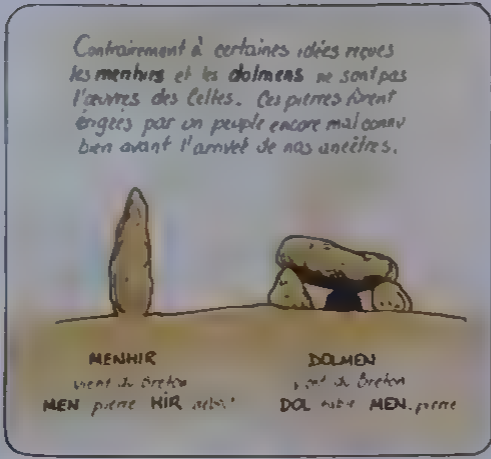 Contrairement à certaines idées reçues
les menhirs et les dolmens ne sont pas
l'œuvres des Celtes. Ces pierres furent
érigées par un peuple encore mal connu
bien avant l'arrivée de nos ancêtres.
MENHIR
vient du Breton
MEN pierre HIR
DOLMEN
vient du Breton
DOL table MEN. pierre